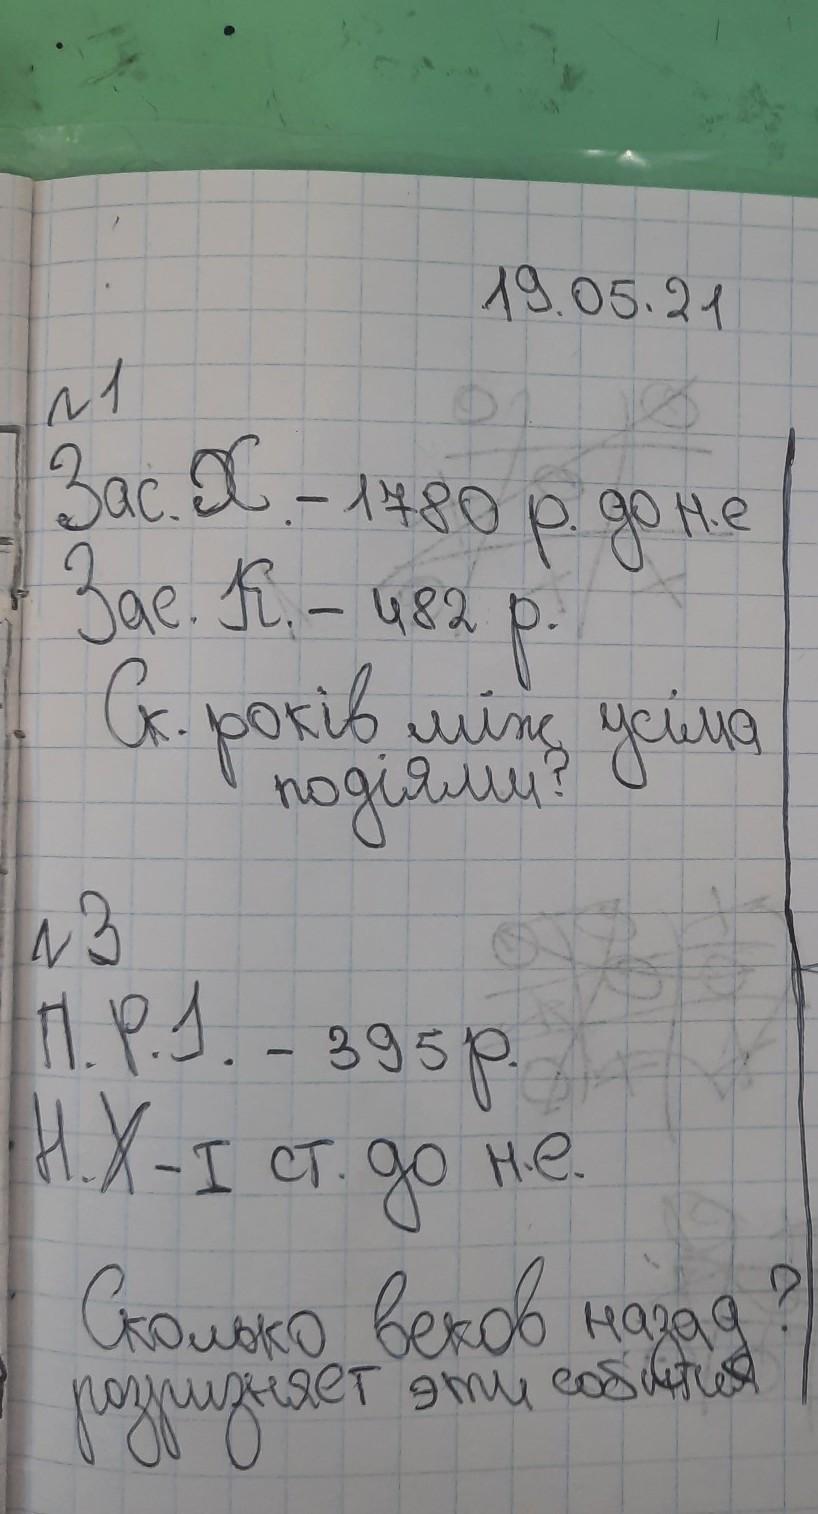 19.05.21
№1
Зас. Х. - 1780 р. до н.е
Зас. К. - 482 р.
Ск. років між усіма
подіями?
№3
П.Р.І. - 395 р.
Н.Х - І ст. до н.е.
Сколько веков назад?
розризняет эти события